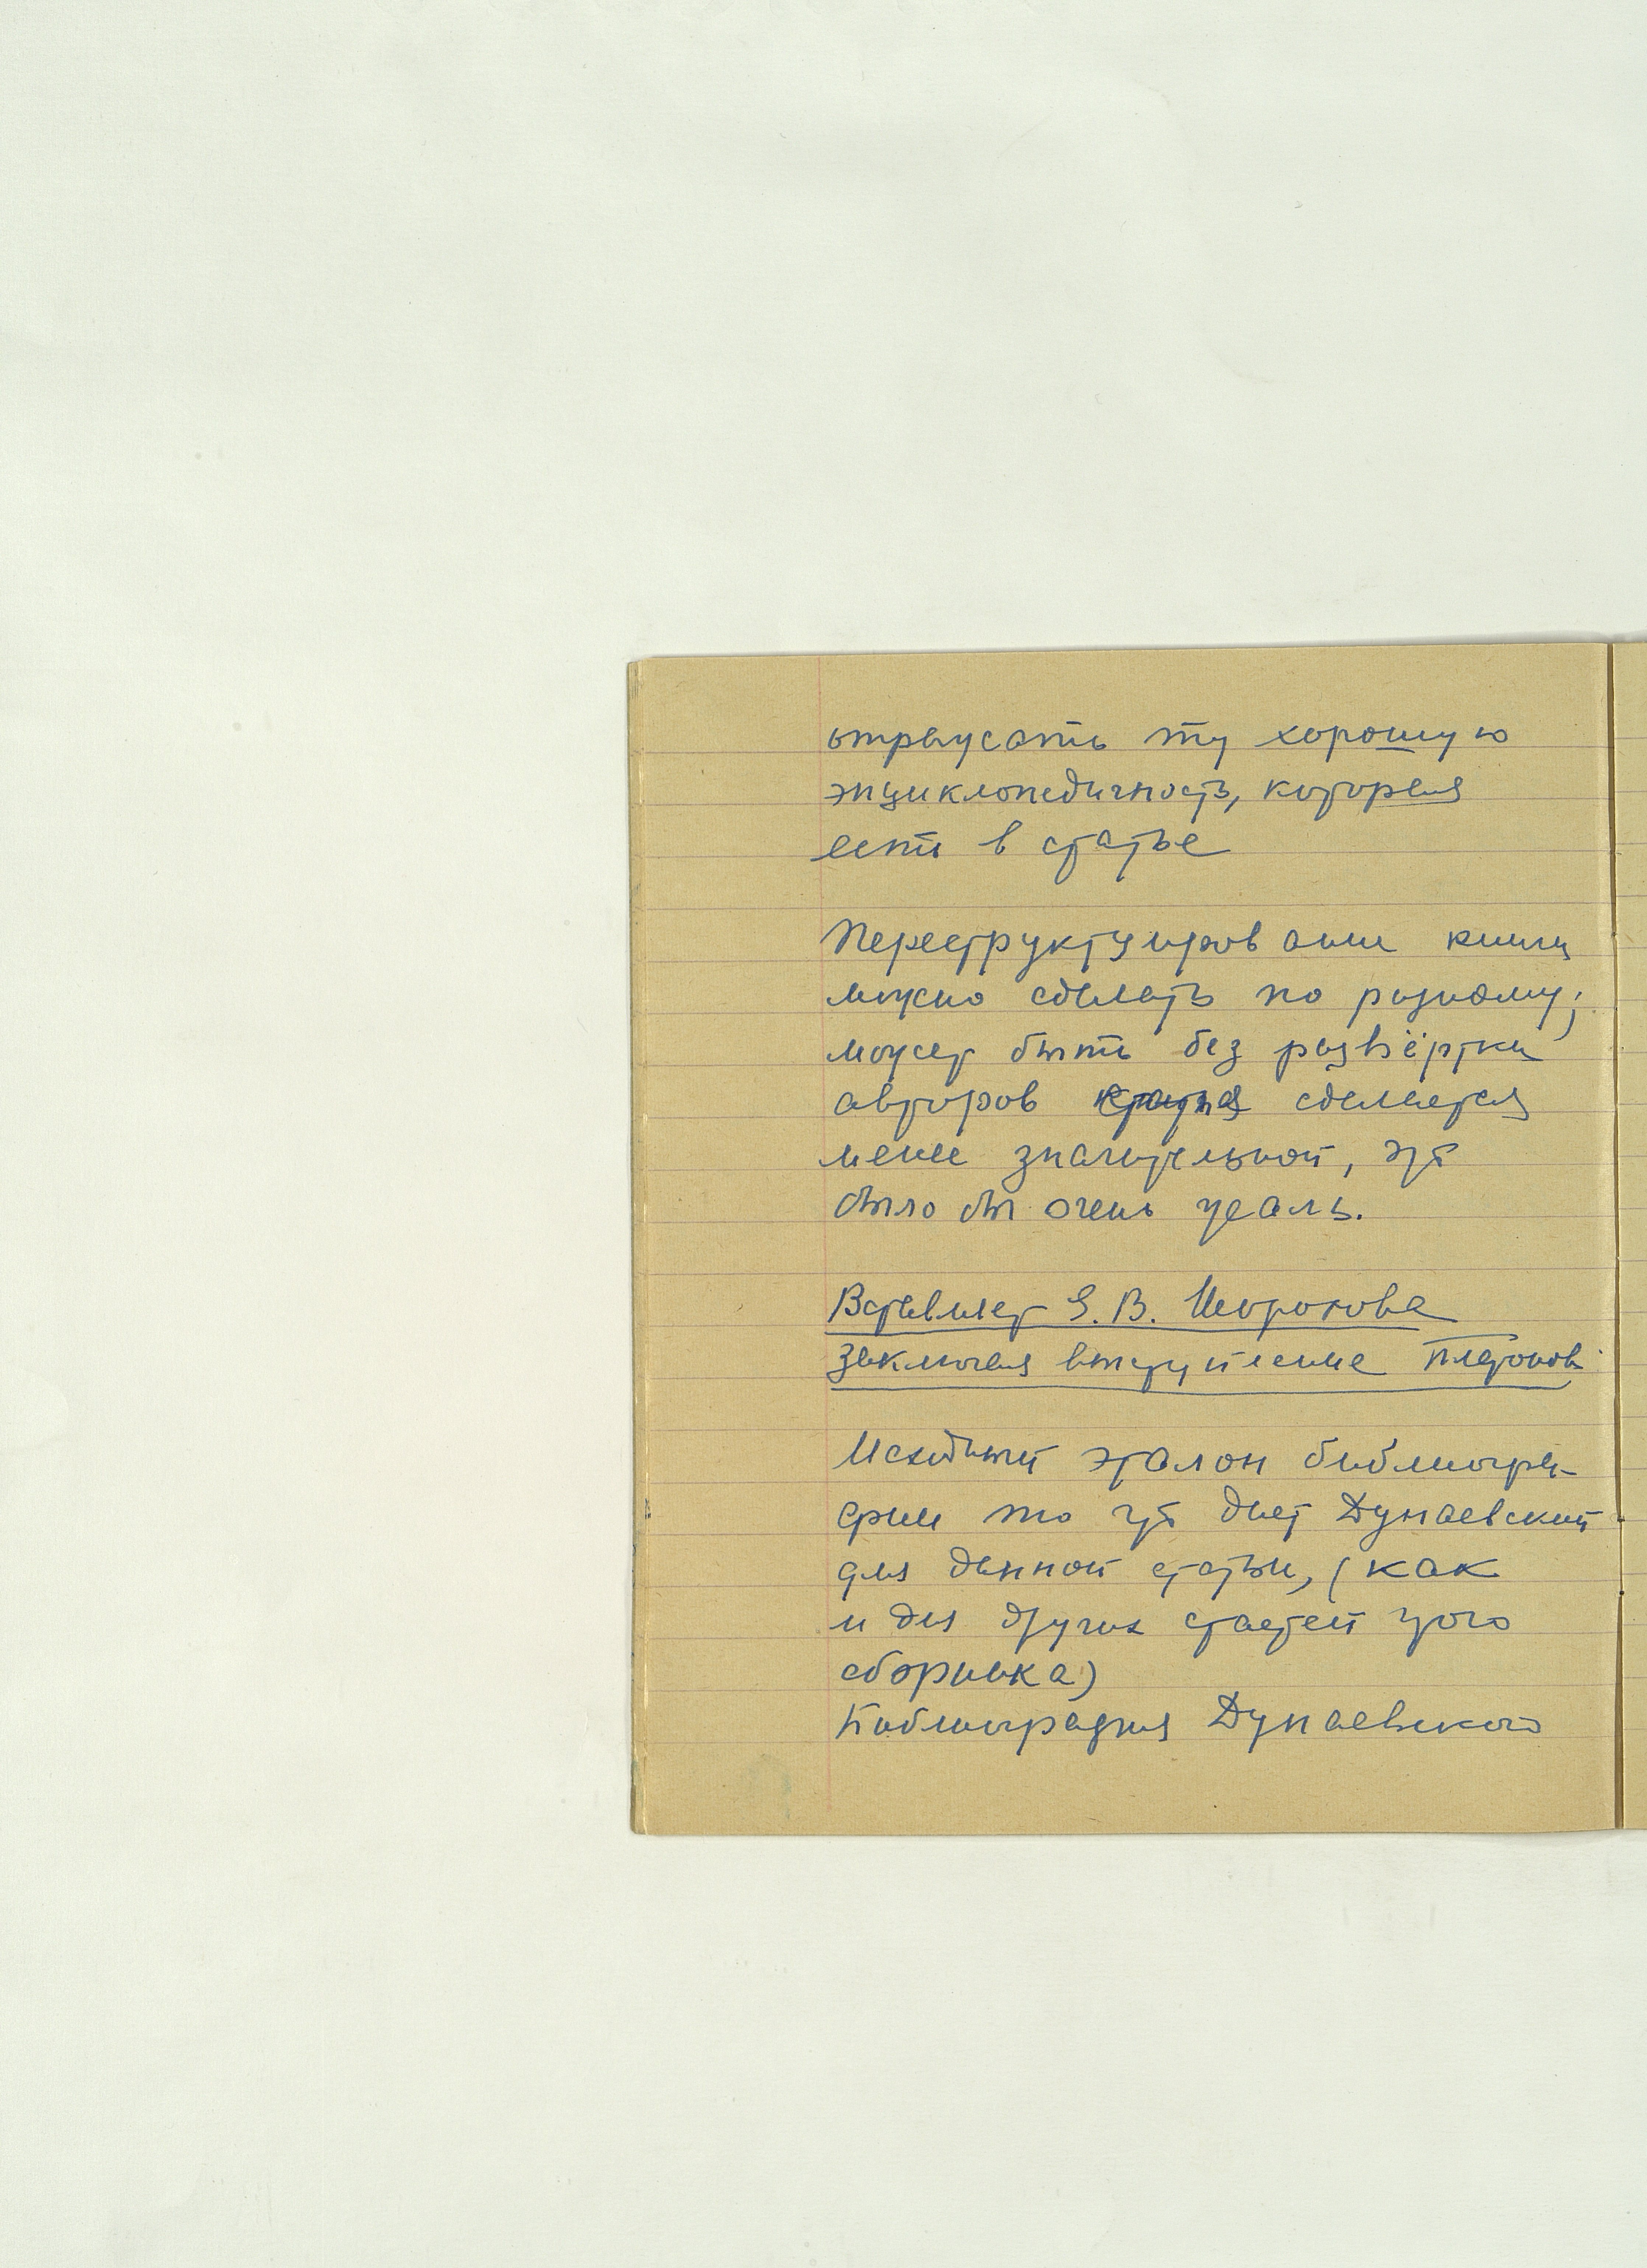 отражать ту хорошую
энциклопедичность, которая
есть в статье
Переструктурирование книги
можно сделать по разному;
может быть без развёртки
авторов статья сделается
менее значительной, это
было бы очень жаль.
Вставляет Е. В. Шорохова
заключая вступление Платонова
Исходный эталон библиогра-
фии то что дает Дунаевский
для данной статьи, (как
и для других статей этого
сборника)
Библиография Дунаевского